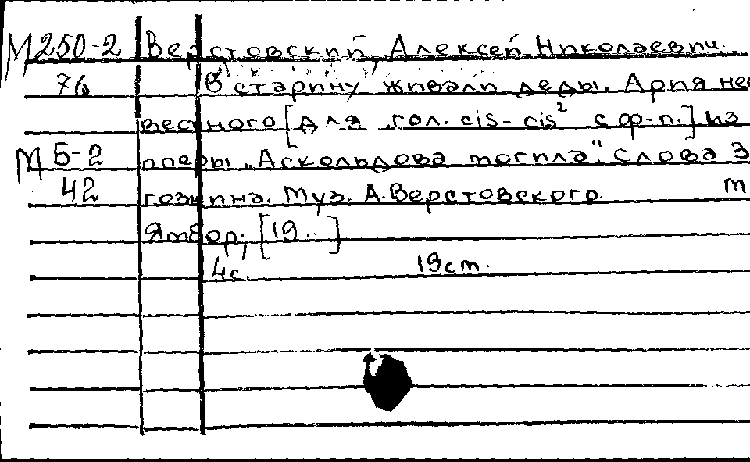 М 250-2 Верстовский, Алексей Николаевич.
76 В старину живали деды. Ария неи
вестного [для гол. cis-cis² с ф-п.] из
М Б-2 оперы „Аскольдова могила". Слова З
42 госкина. Муз. А. Верстовского m
[19.. ]
4с. 19 cm.